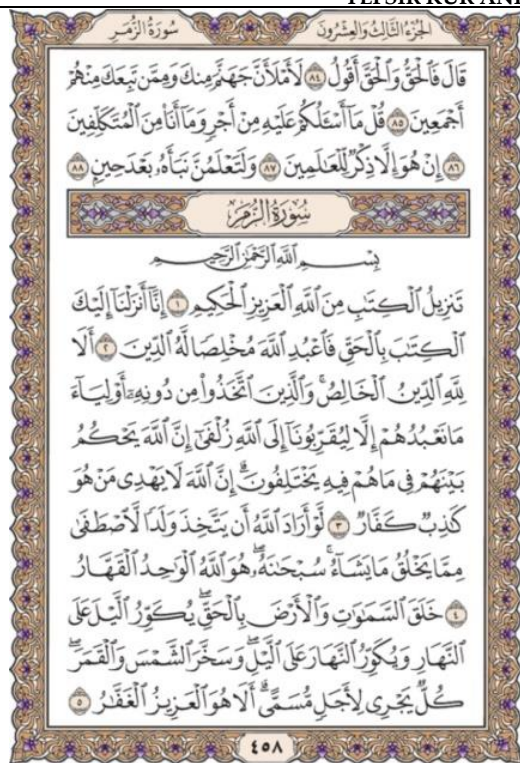 سُورَةُ الزُّمَرِ الجُزْءُ الثَّالِثُ وَالْعِشْرُونَ
قَالَ فَٱلْحَقُّ وَٱلْحَقَّ أَقُولُ ٨٤ لَأَمْلَأَنَّ جَهَنَّمَ مِنكَ وَمِمَّن تَبِعَكَ مِنْهُمْ
أَجْمَعِينَ ٨٥ قُلْ مَآ أَسْـَٔلُكُمْ عَلَيْهِ مِنْ أَجْرٍ وَمَآ أَنَا۠ مِنَ ٱلْمُتَكَلِّفِينَ
٨٦ إِنْ هُوَ إِلَّا ذِكْرٌ لِّلْعَٰلَمِينَ ٨٧ وَلَتَعْلَمُنَّ نَبَأَهُۥ بَعْدَ حِينٍۭ ٨٨
سُورَةُ الزُّمَرِ
بِسْمِ ٱللَّهِ ٱلرَّحْمَٰنِ ٱلرَّحِيمِ
تَنزِيلُ ٱلْكِتَٰبِ مِنَ ٱللَّهِ ٱلْعَزِيزِ ٱلْحَكِيمِ ١ إِنَّآ أَنزَلْنَآ إِلَيْكَ
ٱلْكِتَٰبَ بِٱلْحَقِّ فَٱعْبُدِ ٱللَّهَ مُخْلِصًا لَّهُ ٱلدِّينَ ٢ أَلَا
لِلَّهِ ٱلدِّينُ ٱلْخَالِصُ ۚ وَٱلَّذِينَ ٱتَّخَذُوا۟ مِن دُونِهِۦٓ أَوْلِيَآءَ
مَا نَعْبُدُهُمْ إِلَّا لِيُقَرِّبُونَآ إِلَى ٱللَّهِ زُلْفَىٰٓ إِنَّ ٱللَّهَ يَحْكُمُ
بَيْنَهُمْ فِى مَا هُمْ فِيهِ يَخْتَلِفُونَ ۗ إِنَّ ٱللَّهَ لَا يَهْدِى مَنْ هُوَ
كَٰذِبٌ كَفَّارٌ ٣ لَّوْ أَرَادَ ٱللَّهُ أَن يَتَّخِذَ وَلَدًا لَّٱصْطَفَىٰ
مِمَّا يَخْلُقُ مَا يَشَآءُ ۚ سُبْحَٰنَهُۥ ۖ هُوَ ٱللَّهُ ٱلْوَٰحِدُ ٱلْقَهَّارُ
٤ خَلَقَ ٱلسَّمَٰوَٰتِ وَٱلْأَرْضَ بِٱلْحَقِّ ۖ يُكَوِّرُ ٱلَّيْلَ عَلَى
ٱلنَّهَارِ وَيُكَوِّرُ ٱلنَّهَارَ عَلَى ٱلَّيْلِ ۖ وَسَخَّرَ ٱلشَّمْسَ وَٱلْقَمَرَ ۖ
كُلٌّ يَجْرِى لِأَجَلٍ مُّسَمًّى ۗ أَلَا هُوَ ٱلْعَزِيزُ ٱلْغَفَّٰرُ ٥
٤٥٨